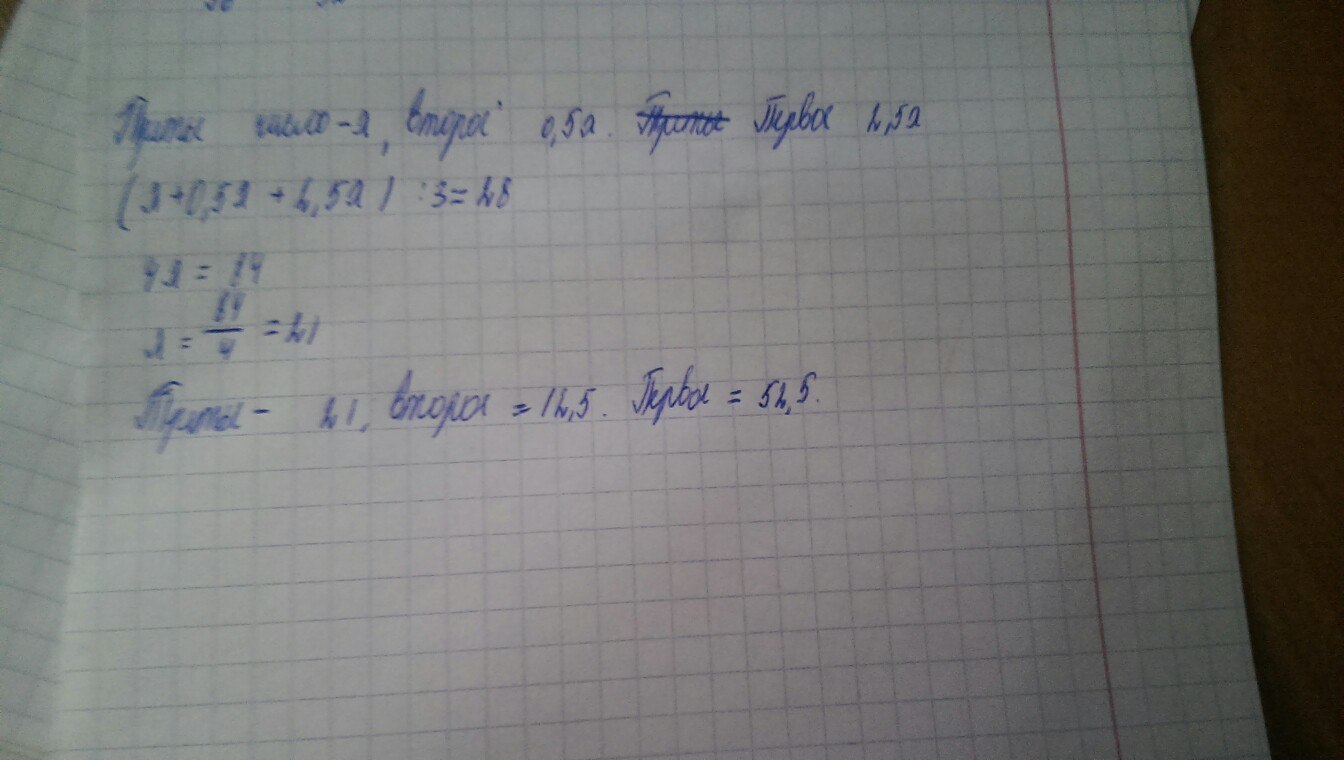 Третье число - x, второе 0,5x. Первое 2,5x
(x+0,5x + 2,5x) :3=28
4x = 84
x = 84/4 = 21
Третье - 21, второе = 12,5. Первое = 52,5.